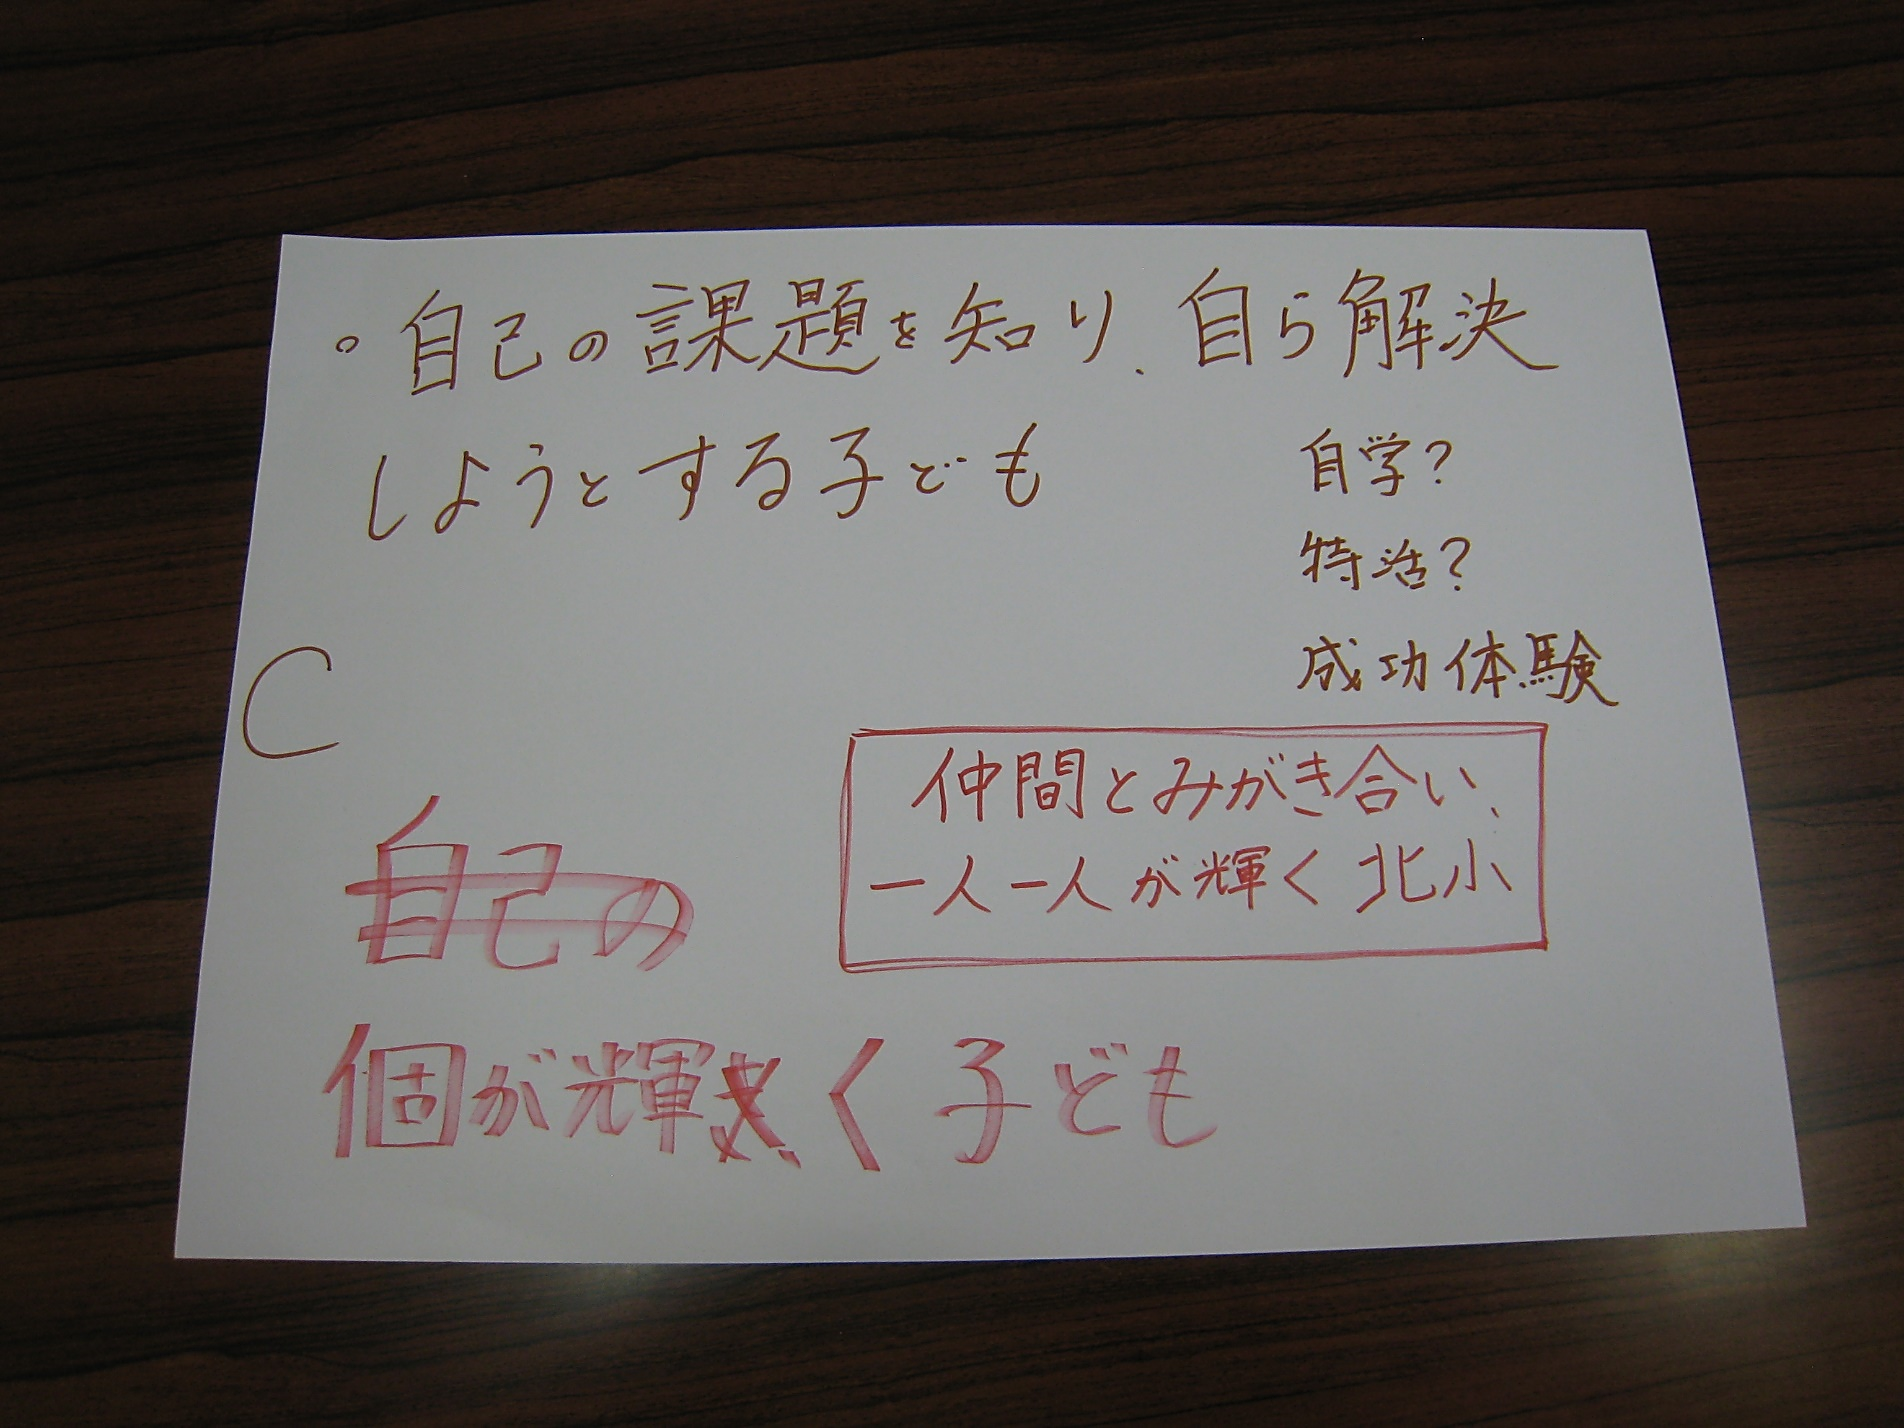 。自己の課題を知り、自ら解決
しようとする子ども
自学?
特活?
成功体験
C
仲間とみがき合い、
一人一人が輝く北小
自己の
個が輝く子ども